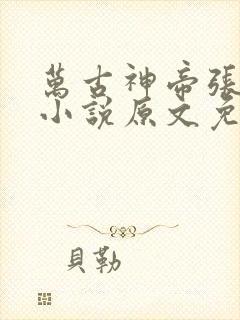 萬古神帝張
小說原文免
貝勒